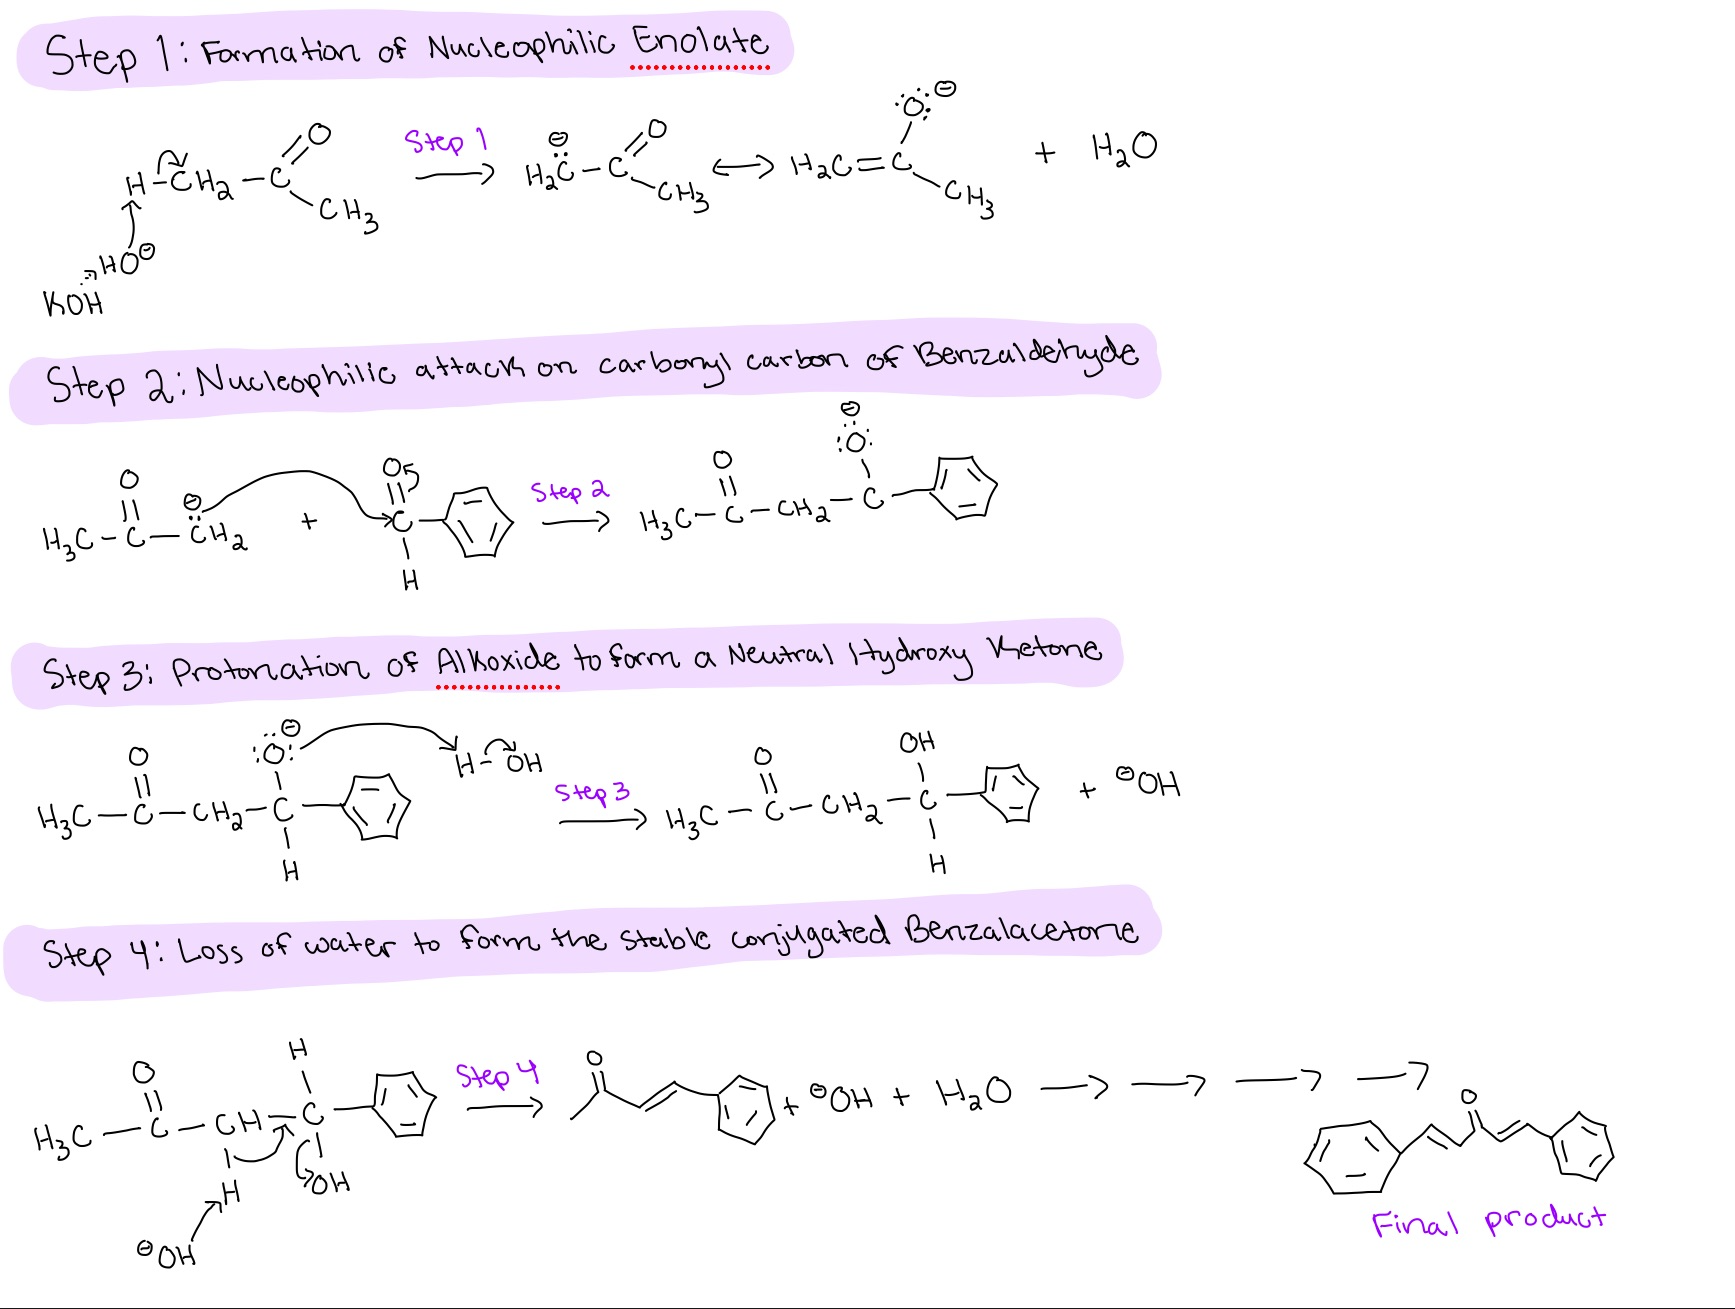 Step 1: Formation of Nucleophilic Enolate
H-CH₂-C O CH₃
Step 1
H₂C-C O CH₃ ↔ H₂C=C O ⊖ CH₃ + H₂O
HO⊖
KOH
Step 2: Nucleophilic attack on carbonyl carbon of Benzaldehyde
H₃C-C-CH₂ O ⊖ + O C H
Step 2
H₃C-C-CH₂-C O O ⊖
Step 3: Protonation of Alkoxide to form a Neutral Hydroxy Ketone
H₃C-C-CH₂-C O O ⊖ H
H-OH
Step 3
H₃C-C-CH₂-C O OH H + ⊖OH
Step 4: Loss of water to form the stable conjugated Benzalacetone
H₃C-C-CH-C O H H OH
⊖OH
Step 4
O + ⊖OH + H₂O
O
Final product